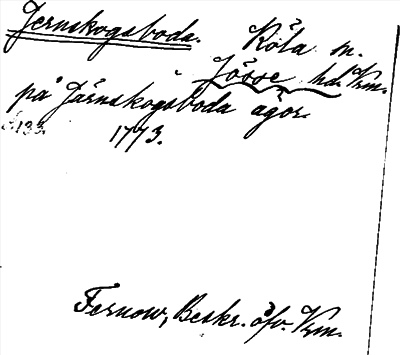 Jernskogsboda. Köla sn.
Jösse hd. Vrm.
på Järnskogsboda ägor.
s 133. 1773.
Fernow, Beskr. öfv. Vrm.